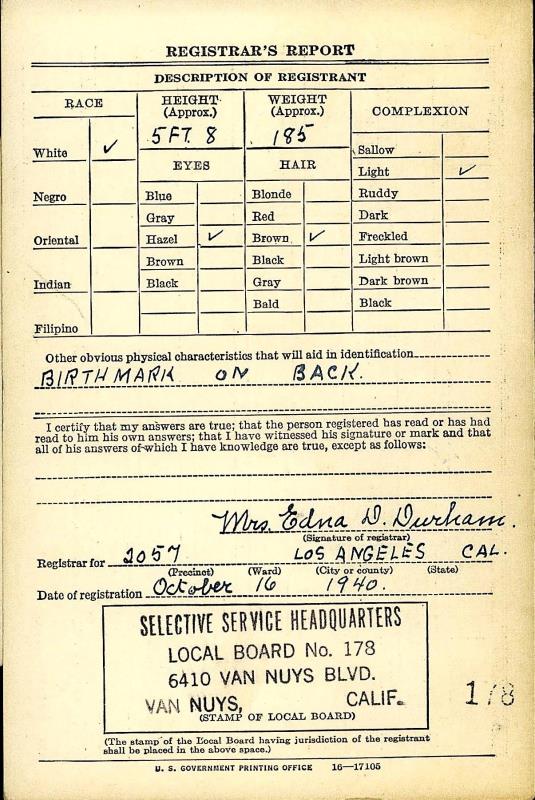 REGISTRAR'S REPORT
DESCRIPTION OF REGISTRANT
RACE
HEIGHT (Approx.)
WEIGHT (Approx.)
COMPLEXION
5 FT. 8
185
White ✓
EYES
HAIR
Sallow
Light ✓
Negro
Blue
Blonde
Ruddy
Gray
Red
Dark
Oriental
Hazel ✓
Brown ✓
Freckled
Brown
Black
Light brown
Indian
Black
Gray
Dark brown
Bald
Black
Filipino
Other obvious physical characteristics that will aid in identification
BIRTHMARK ON BACK.
I certify that my answers are true; that the person registered has read or has had
read to him his own answers; that I have witnessed his signature or mark and that
all of his answers of which I have knowledge are true, except as follows:
Mrs. Edna D. Durham.
(Signature of registrar)
Registrar for 2057 LOS ANGELES CAL.
(Precinct) (Ward) (City or county) (State)
Date of registration October 16 1940.
SELECTIVE SERVICE HEADQUARTERS
LOCAL BOARD No. 178
6410 VAN NUYS BLVD.
VAN NUYS, CALIF.
(STAMP OF LOCAL BOARD)
178
(The stamp of the Local Board having jurisdiction of the registrant
shall be placed in the above space.)
U. S. GOVERNMENT PRINTING OFFICE 16—17105